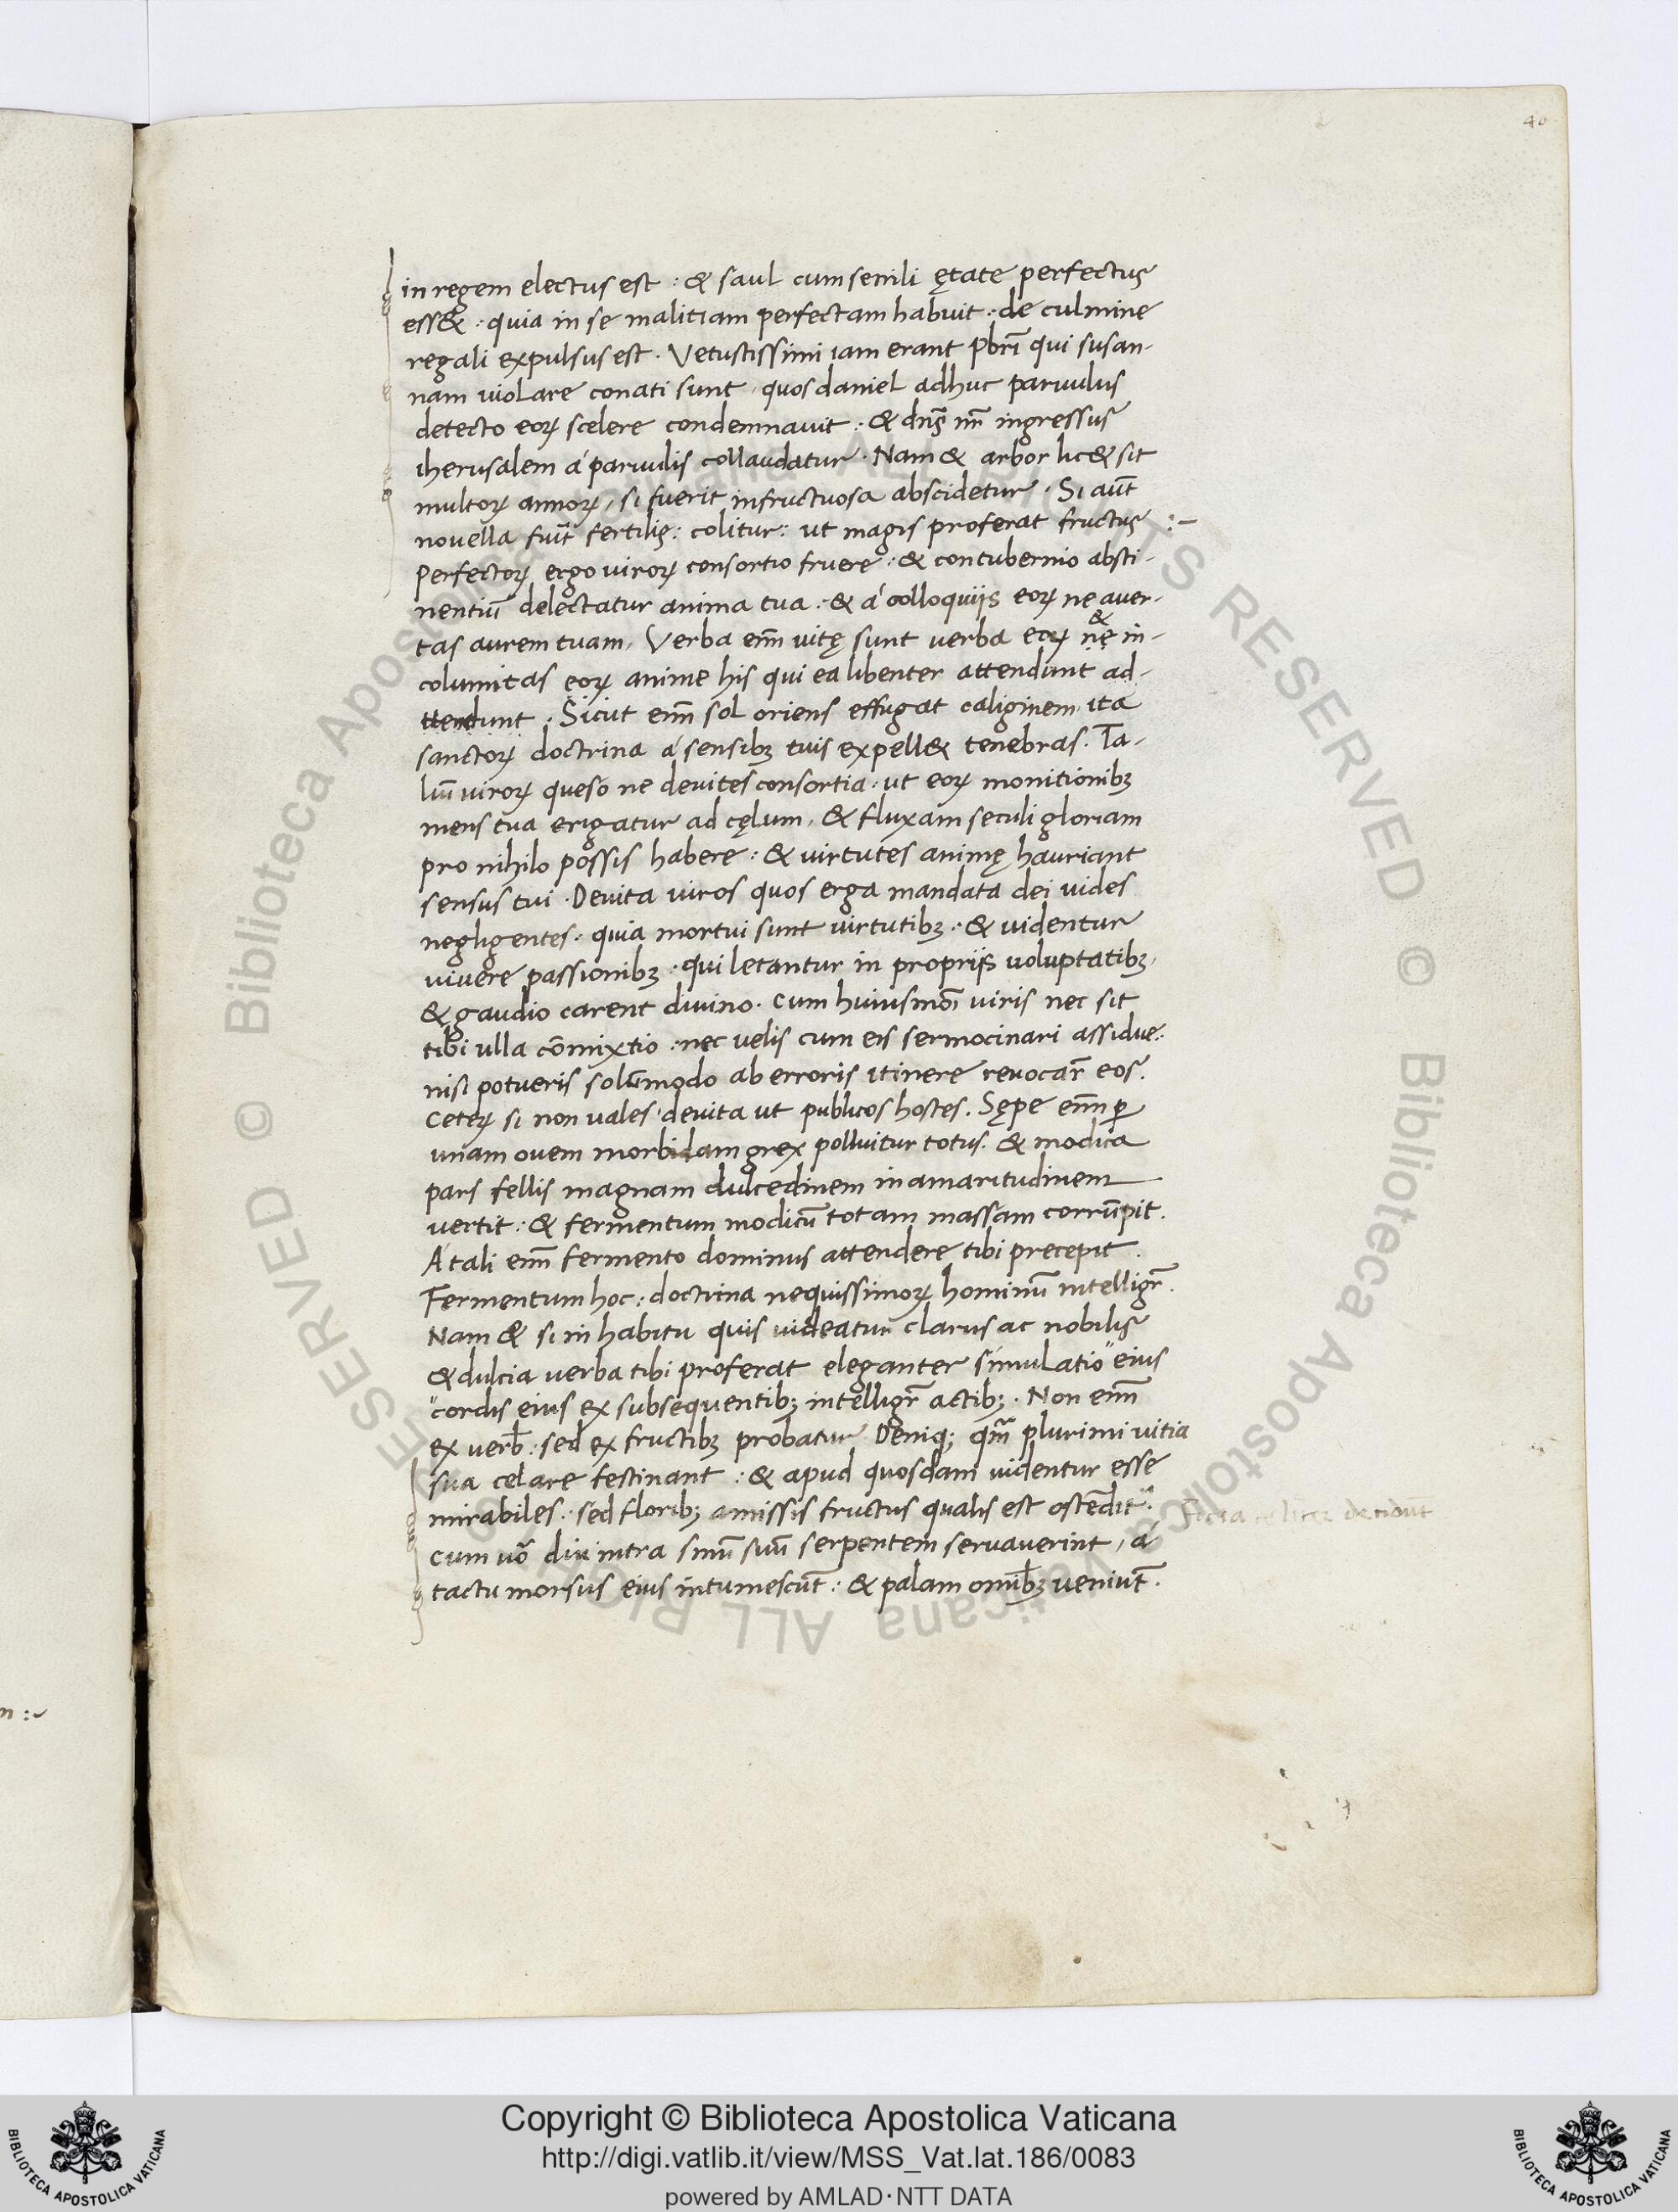 40
in regem electus est : & saul cum senili ętate perfectus
ess& : quia in se malitiam perfectam habuit : de culmine
regali expulsus est . Vetustissimi iam erant pbrı̄ qui susan-
nam violare conati sunt , quos daniel adhuc paruulus
detecto eoꝝ scelere condemnauit : & dn̄s nr̄ ingressus
iherusalem á paruulis collaudatur . Nam & arbor lic& sit
multoꝝ annoꝝ , si fuerit infructuosa abscidetur . Si aūt
nouella fuīt fertilis : colitur : ut magis proferat fructus :-
Perfectoꝝ ergo viroꝝ consortio fruere : & contubernio absti-
nentiū delectatur anima tua : & á colloquiis eoꝝ ne auer-
tas aurem tuam . Verba enī vitę sunt verba eoꝝ nę & in-
columitas eoꝝ anime his qui ea libenter attendunt ad-
ttendunt . Sicut enī sol oriens effugat caliginem ita
sanctoꝝ doctrina á sensibꝫ tuis expell& tenebras . Ta-
liū viroꝝ queso ne devites consortia : ut eoꝝ monitionibꝫ
mens tua erigatur ad cęlum , & fluxam seculi gloriam
pro nihilo possis habere : & virtutes animę hauriant
sensus tui . Devita viros quos erga mandata dei vides
negligentes : quia mortui sunt virtutibꝫ : & videntur
vivere passionibꝫ : qui letantur in propriis voluptatibꝫ .
& gaudio carent divino . Cum huiusmōi viris nec sit
tibi ulla cōmixtio : nec velis cum eis sermocinari assidue :
nisi potueris solūmodo ab erroris itinere revocar̄ eos .
Ceteꝝ si non vales devita ut publicos hostes . Sępe enī ꝑ
unam ovem morbidam grex polluitur totus . & modica
pars fellis magnam dulcedinem in amaritudinem
vertit : & fermentum modicū totam massam corrūpit .
Á tali enī fermento dominus attendere tibi precepit .
Fermentum hoc : doctrina nequissimoꝝ hominū intelligr̄ .
Nam & si in habitu quis videatur clarus ac nobilis
& dulcia verba tibi proferat eleganter simulatio" eius
"cordis eius ex subsequentibꝫ intelligr̄ actibꝫ . Non enī
ex verb̄ : sed ex fructibꝫ probatur Deniqꝫ qm̄ plurimi vitia
sua celare festinant : & apud quosdam videntur esse
mirabiles . sed floribꝫ amissis fructus qualis est ostēdit̄ .
decidunt
Cum vō diu intra sinū suū serpentem servaverint , á
tactu morsus eius intumescūt : & palam omībꝫ veniūt .
n :~
© Biblioteca Apostolica Vaticana ALL RIGHTS RESERVED
© Biblioteca Apostolica Vaticana ALL RIGHTS RESERVED
Copyright © Biblioteca Apostolica Vaticana
http://digi.vatlib.it/view/MSS_Vat.lat.186/0083
powered by AMLAD·NTT DATA
BIBLIOTECA APOSTOLICA VATICANA
BIBLIOTECA APOSTOLICA VATICANA